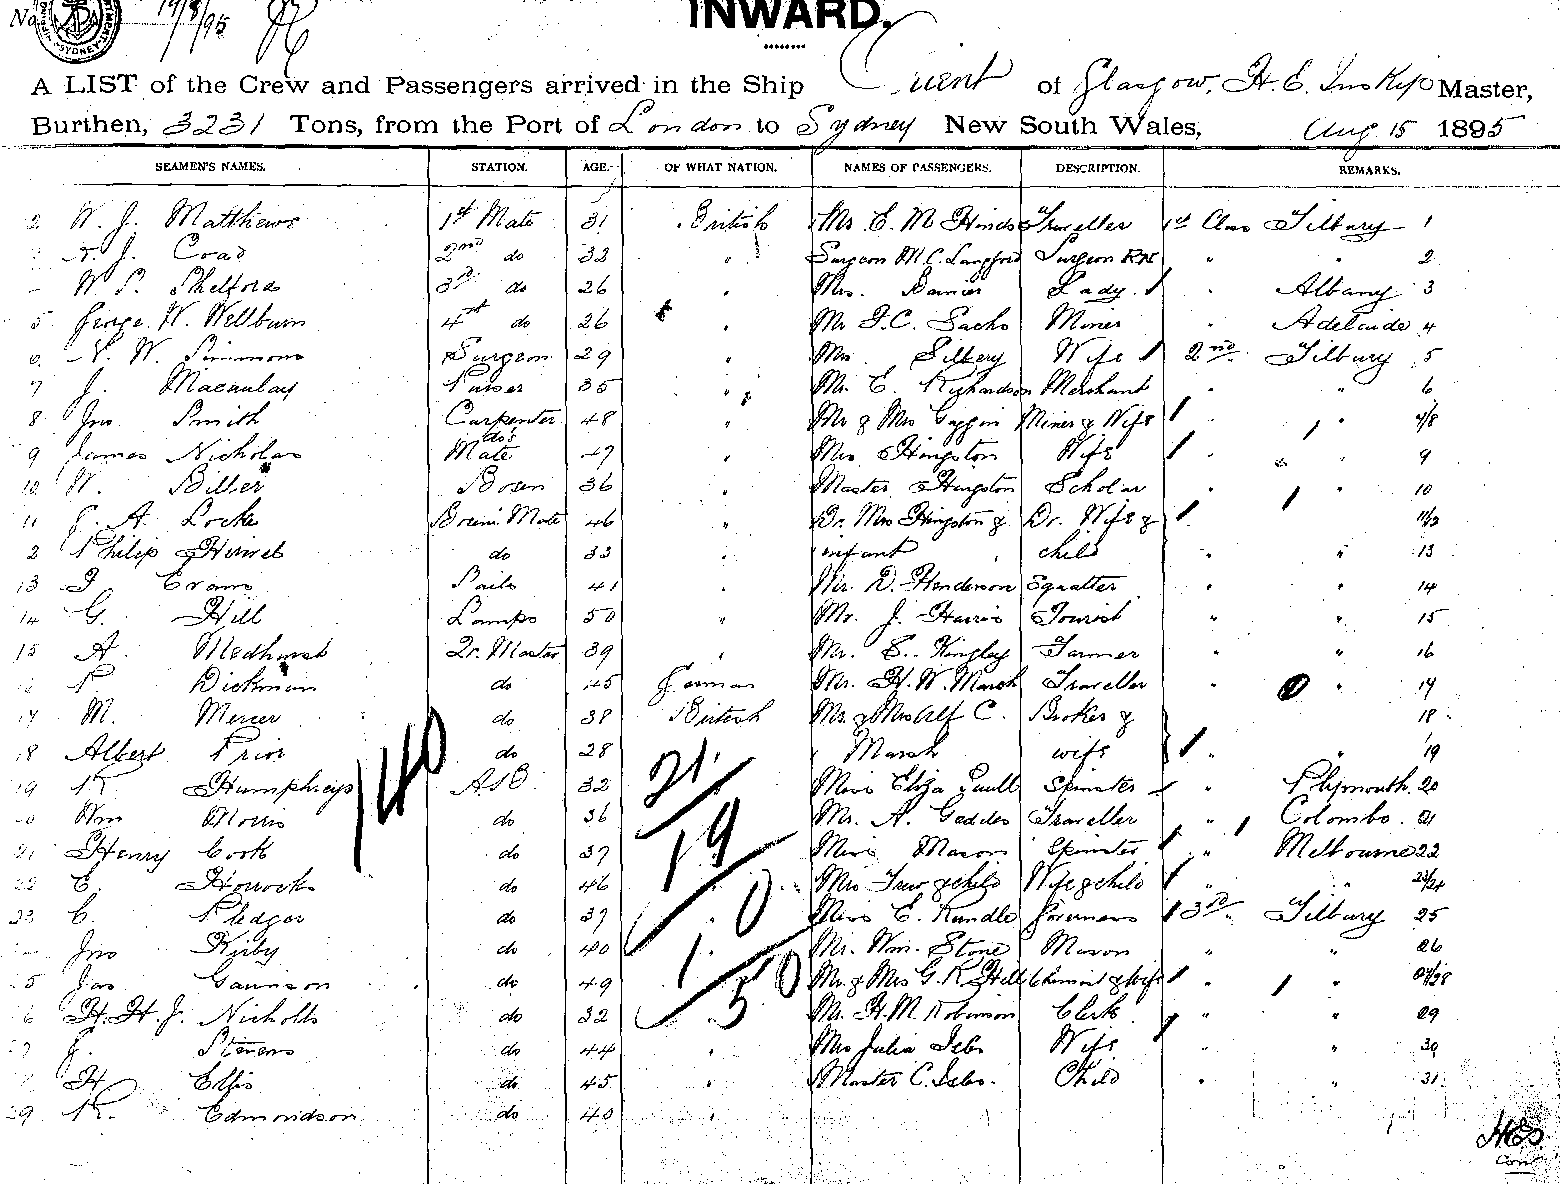 No.
SYDNEY
INWARD.
A LIST of the Crew and Passengers arrived in the Ship Orient of Glasgow, H. E. Inskip Master,
Burthen, 3231 Tons, from the Port of London to Sydney New South Wales, Aug 15 1895
SEAMEN'S NAMES. STATION. AGE. OF WHAT NATION. NAMES OF PASSENGERS. DESCRIPTION. REMARKS.
2 W. J. Matthews 1st Mate 31 British Mr E. M. Hinds Traveller 1st Class Tilbury 1
J. Coad 2nd do 33 " Surgeon M. C. Langford Surgeon RN " " 2
W. P. Shelford 3rd do 26 " Mrs. Lady " Albany 3
5 George W. Wellburn 4th do 26 " Mr F. C. Sachs Miner " Adelaide 4
6 W. Simmons Surgeon 29 " Mrs Silbery Wife 2nd Tilbury 5
7 J. Macaulay Purser 35 " Mr. E. Richardson Merchant " " 6
8 Jno Smith Carpenter 48 " Mr & Mrs Gaggin Miner & Wife " " 7/8
9 James Nicholas do's Mate 47 " Mrs Hingston Wife " " 9
10 W. Biller Bosun 36 " Master Hingston Scholar " " 10
11 J. A. Locke Bosuns Mate 46 " Dr. Mrs Hingston & Dr. Wife & " " 11/12
2 Philip do 33 " infant child " " 13
13 Evans Sails 41 " Mr. D. Henderson Squatter " " 14
14 G. Hill Lamps 50 " Mr. J. Harris Tourist " " 15
15 A. Medhurst Qr. Master 39 " Mr. S. Kingley Farmer " " 16
P. Dickman do 45 German Mr. H. W. Marsh Traveller " " 17
17 M. Mercer do 38 British Mr. & Mrs Alf C. Broker & 18
18 Albert Prior do 28 Marsh wife " " 19
19 R. Humphreys AB 32 Miss Eliza Paull Spinster " Plymouth 20
Wm Morris do 36 Mr. A. Geddes Traveller " Colombo 21
21 Henry Cook do 37 Miss Mason Spinster " Melbourne 22
22 E. Horrocks do 46 Mrs Trew & child Wife & child " " 23/24
23 C. Pledger do 37 " Miss E. Rundle Governess 3rd Tilbury 25
Jno Kirby do 40 Mr. Wm. Stone Mason " " 26
5 Jas Garrison do 49 Mr. & Mrs G. R. Hill Chemist & Wife " " 27/28
6 H. H. J. Nicholls do 32 " Mr. H. M. Robinson Clerk " " 29
J. Stevens do 44 " Mrs Julia Isbs Wife " " 30
H. Ellis do 45 " Master C. Isbs. Child " " 31
29 R. Edmondson do 40
140
21
19
0
1
50